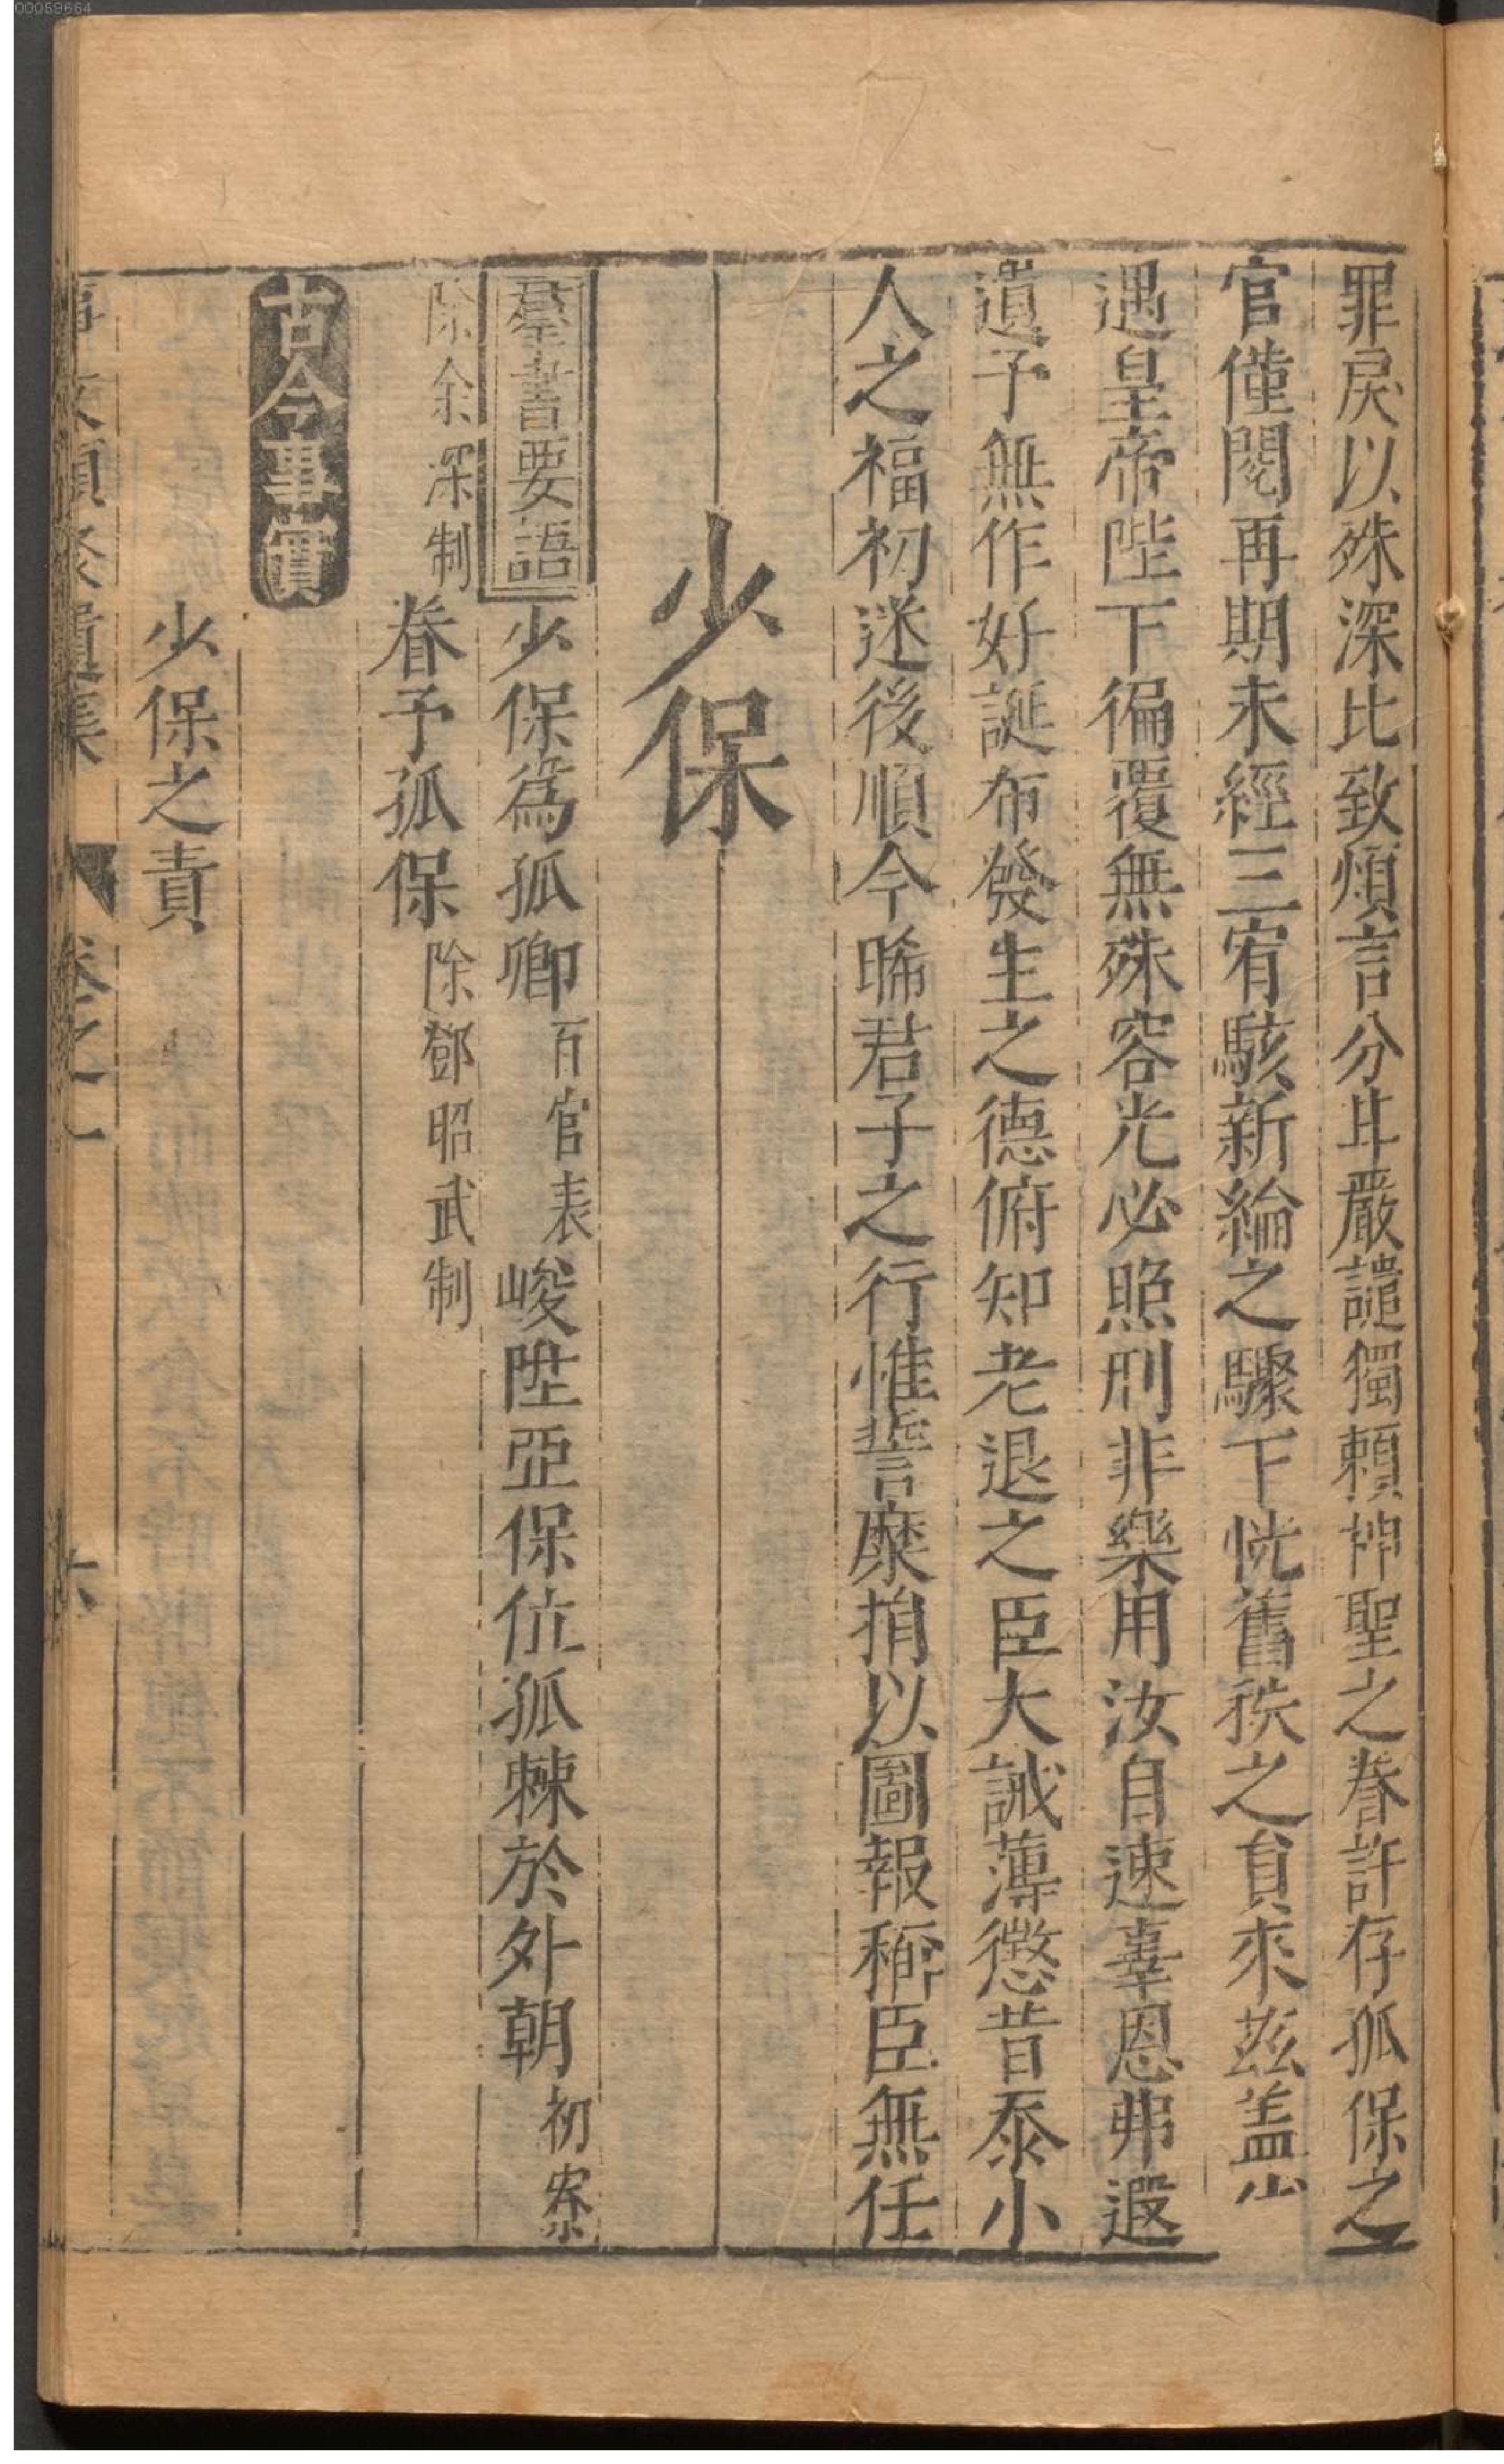 00059664
罪戾以殊深比致煩言分甘嚴譴獨賴神聖之眷許存孤保之
官僅閱再期未經三宥駭新綸之驟下恍舊秩之負來茲盖
遇皇帝陛下徧覆無殊容光必照刑非樂用汝自速辜恩弗遐
遺予無作好誕布發生之德俯知老退之臣大誡薄懲昔泰小
人之福初迷後順今睎君子之行惟誓糜捐以圖報稱臣無任
少保
羣書要語 少保為孤卿 百官表 峻陞亞保位孤棘於外朝 初寮
除余深制 眷予孤保 除鄧昭武制
古今事實
少保之責
卷之一 六